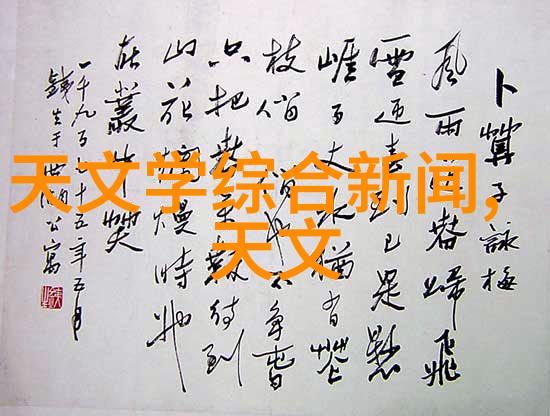 卜算子詠梅
風雨送春歸飛
雪迎春到已是懸
崖百丈冰猶有花
枝俏俏也不爭春
只把春來報待到
山花爛熳時她
在叢中笑
一千九百七十五年五月
天文学综合新闻,
天文